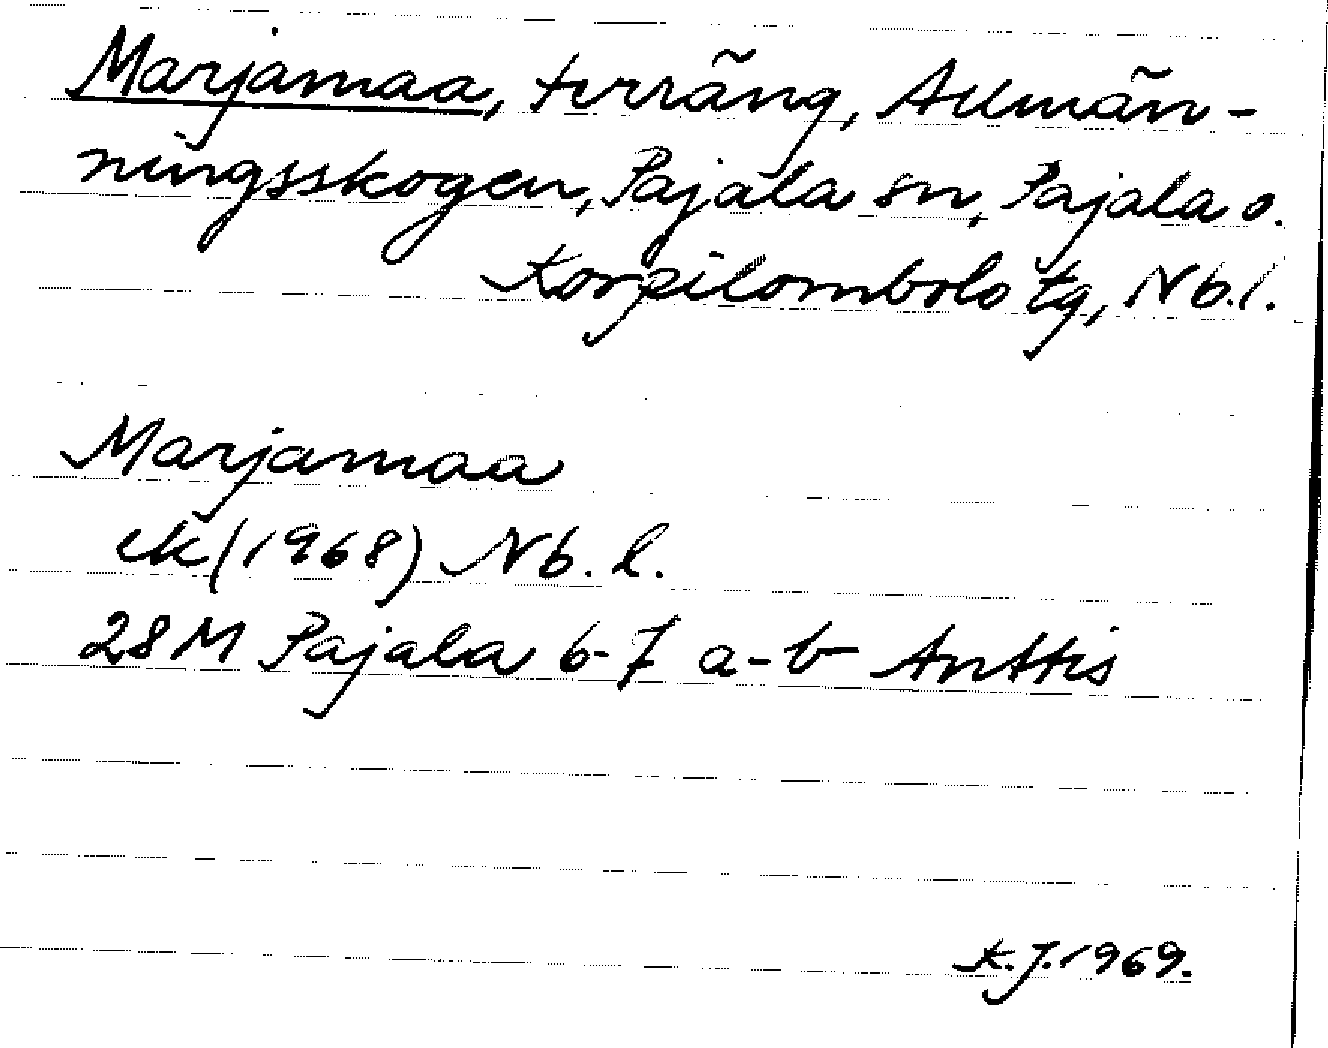 Marjamaa, terräng, Allmän-
ningsskogen, Pajala sn, Pajala o.
Korpilombolo tg, Nb.l.
Marjamaa
ek (1968) Nb. l.
28M Pajala 6-7 a-b Anttis
K.J. 1969.